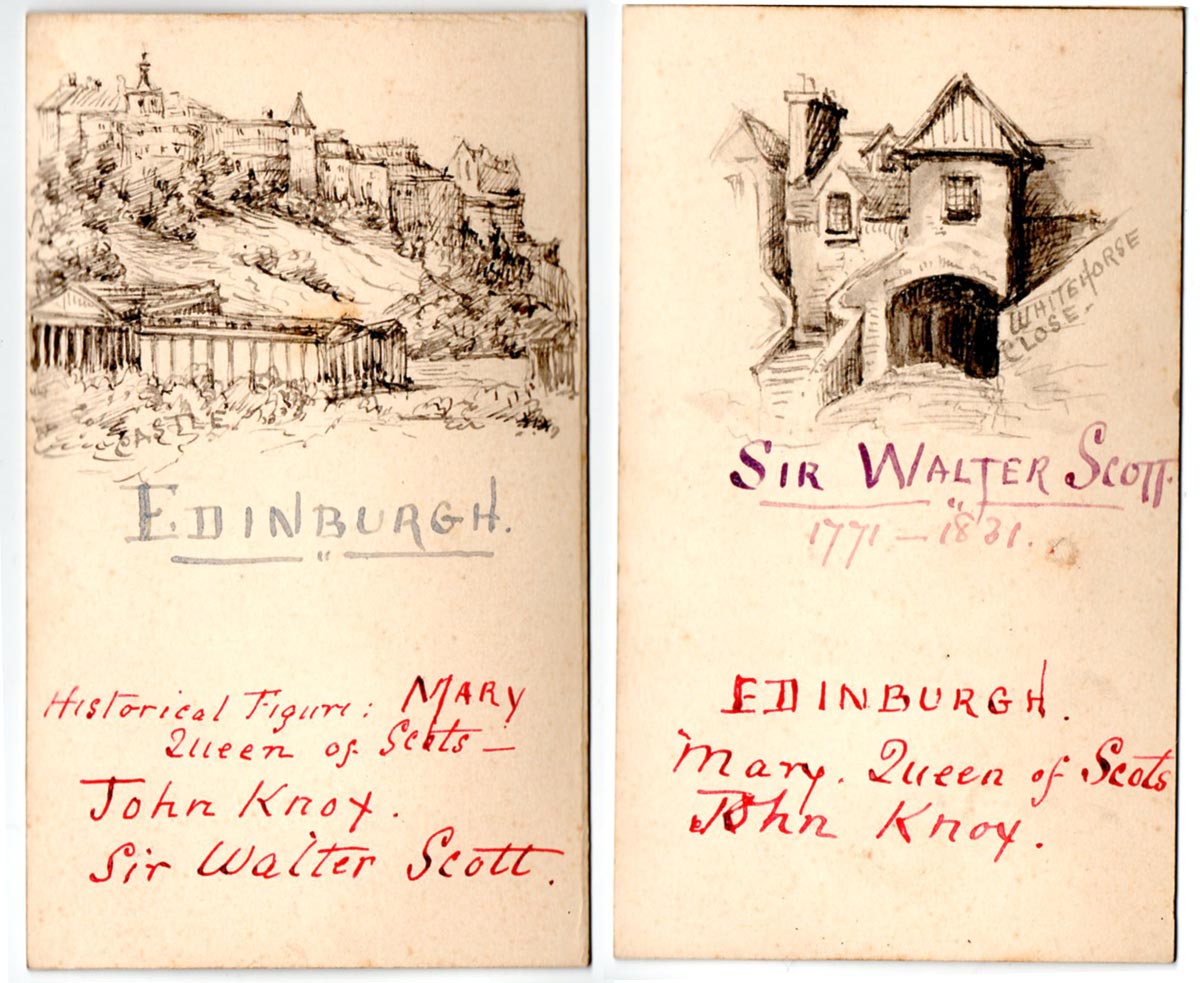 CASTLE.
EDINBURGH.
Historical Figure: MARY
Queen of Scots —
John Knox.
Sir Walter Scott.
WHITEHORSE
CLOSE.
SIR WALTER SCOTT.
1771 — 1831.
EDINBURGH.
Mary. Queen of Scots
John Knox.